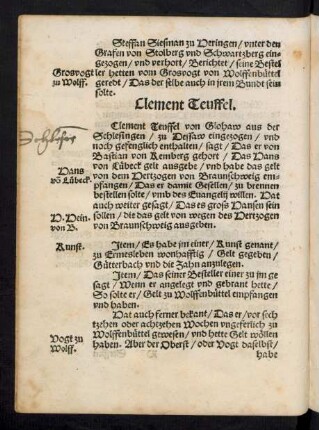 Steffan Siesman zu Deringen / vnter den
Grafen von Stolberg vnd Schwartzberg ein-
gezogen / vnd verhort / Berichtet / seine Bestel
Grosvogt
zu Wolff.
ler hetten vom Grosvogt von Wolffenbüttel
geredt / Das der selbe auch in jrem Bundt sein
solte.
Clement Teuffel.
Clement Teuffel von Glohaw aus der
Schlesingen / zu Dessaw eingezogen / vnd
noch gefenglich enthalten / sagt / Das er von
Bastian von Kemberg gehort / Das Hans
von Lübeck gelt ausgebe / vnd habe das gelt
Hans
võ Lübeck.
von dem Hertzogen von Braunschweig em-
pfangen / Das er damit Gesellen / zu brennen
bestellen solte / vmb des Euangelij willen. Hat
auch weiter gesagt / Das es gros Hansen sein
H. Hein.
von B.
sollen / die das gelt von wegen des Hertzogen
von Braunschweig ausgeben.
Kunst.
Jtem / Es habe jm einer / Kunst genant /
zu Ermesleben wonhafftig / Gelt gegeben /
Gütterbach vnd die Zahn anzulegen.
Jtem / Das seiner Besteller einer zu jm ge
sagt / Wenn er angelegt vnd gebrant hette /
So solte er / Gelt zu Wolffenbüttel empfangen
vnd haben.
Hat auch ferner bekant / Das er / vor sech
tzehen oder achtzehen Wochen vngeferlich zu
Vogt zu
Wolff.
Wolffenbüttel gewesen / vnd hette Gelt wöllen
haben. Aber der Oberst / oder Vogt daselbst /
habe